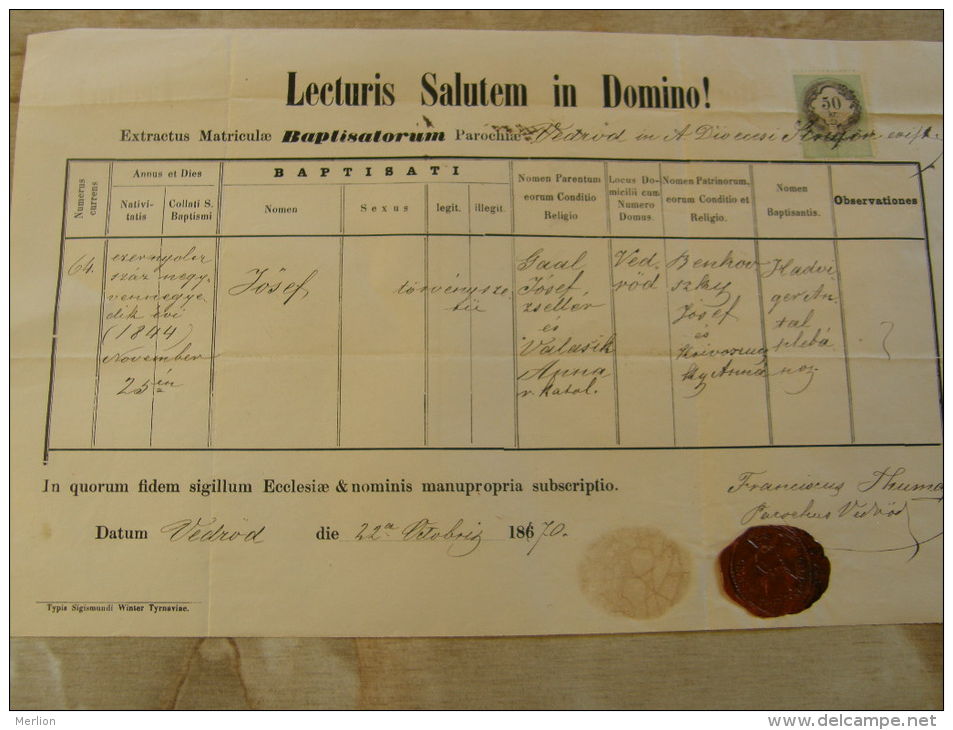 Lecturis Salutem in Domino!
50
kr.
Extractus Matriculæ Baptisatorum Parochiæ Vedröd in A. Dioecesi
Numerus currens
Annus et Dies
Nativi-
tatis
Collati S.
Baptismi
BAPTISATI
Nomen
Sexus
legit.
illegit.
Nomen Parentum
eorum Conditio
Religio
Locus Do-
micilii cum
Numero
Domus.
Nomen Patrinorum,
eorum Conditio et
Religio.
Nomen
Baptisantis.
Observationes
64.
ezernyolcz
száz negy
vennegye
dik évi
(1844)
November
25 én
Jósef,
törvénysze
tü
Gaal
Jósef
zsellér
és
Valasik
Anna
r. katol.
Ved
röd
Benkov
szky
Jósef
és
Krivoszuc
ky Anna
Hadvi
ger An
tal
plebá
noz.
In quorum fidem sigillum Ecclesiæ & nominis manupropria subscriptio.
Franciscus Thuma
Parochus Vedröd
Datum Vedröd die 22a Octobris 1870.
Typis Sigismundi Winter Tyrnaviae.
Merlion
www.delcampe.net